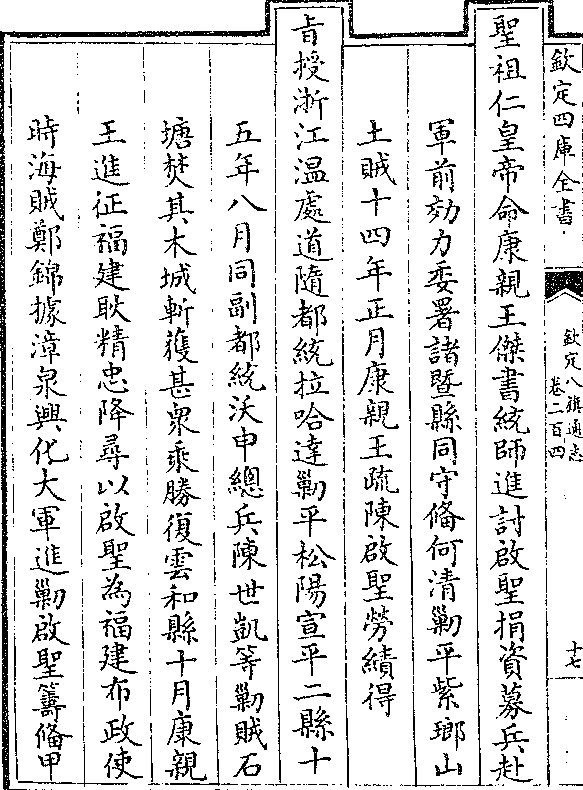 欽定四庫全書
欽定八旗通志
卷二百四
十七
聖祖仁皇帝命康親王傑書統師進討啟聖捐資募兵赴
軍前効力委署諸暨縣同守備何清勦平紫瑯山
土賊十四年正月康親王疏陳啟聖勞績得
旨授浙江温處道隨都統拉哈達勦平松陽宣平二縣十
五年八月同副都統沃申總兵陳世凱等勦賊石
塘焚其木城斬獲甚衆乘勝復雲和縣十月康親
王進征福建耿精忠降尋以啟聖為福建布政使
時海賊鄭錦據漳泉興化大軍進勦啟聖籌備甲